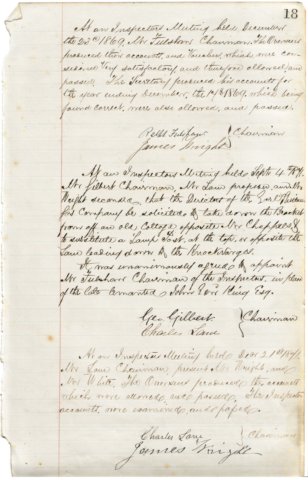 13
At an Inspectors Meeting held December
the 23rd 1869, Mr Fulshaw Chairman. The Overseers
produced their accounts, and Vouchers, which were con-
sidered very satisfactory and therefore allowed, and
passed. The Secretary produced his account for
the year ending December, the 1869. which being
found correct, were also allowed, and passed.
Fulshaw } Chairman
James Wright
At an Inspectors Meeting held Sepr 4
Mr Gilbert Chairman, Mr Lane proposes and Mr
Wright seconds, that the Directors of the
Gas Company be solicited to take down the Bracket
from off an old Cottage opposite Mr Choppers &
to substitute a Lamp Post, at the top, or opposite the
Lane leading down to the
It was unanimously agreed to appoint
Mr Fulshaw Chairman of the Inspectors, in place
of the late lamented John King Esq.
Geo Gilbert } Chairman
Charles Lane
At an Inspectors Meeting held 21st
Mr Lane Chairman, present Mr Wright, and
Mr White. The Overseers produced the accounts
which were allowed, and passed. The Inspector
accounts, were examined and passed.
Charles Lane } Chairman
James Wright